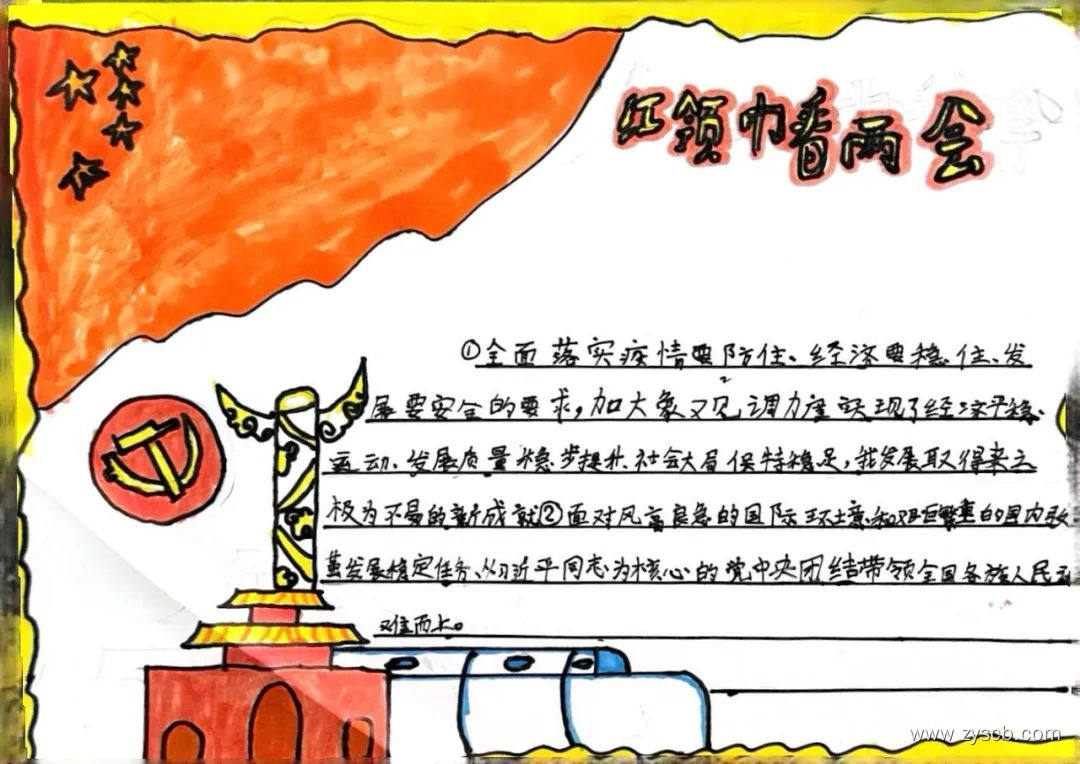 红领巾看两会
①全面落实疫情要防住、经济要稳住、发
展要安全的要求，加大象又见调力度实现了经济平稳
运动、发展质量稳步提升社会大局保持稳定，我发展取得来之
极为不易的新成就②面对风高浪急的国际环境和艰巨繁重的国内改
革发展稳定任务、从习近平同志为核心的党中央团结带领全国各族人民
难而上。
www.zyscb.com